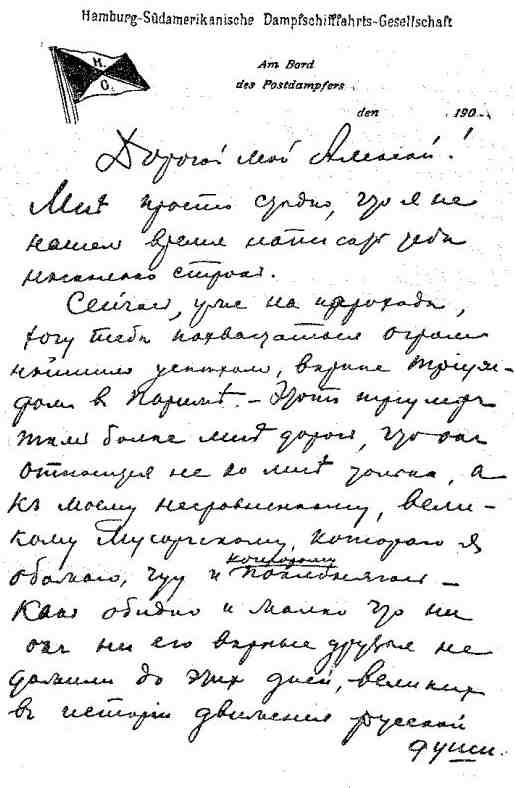 Hamburg-Südamerikanische Dampfschifffahrts-Gesellschaft
H.
G.
Am Bord
des Postdampfers
den 190
Дорогой мой Алексей!
Мнѣ просто стыдно, что я не
нашел время написать тебе
несколько строк.
Сейчас, уже на пароходе,
хочу тебе похвастаться огром-
нейшим успехом, вернее триум-
фом в Парижѣ. - Этот триумф
тѣм более мнѣ дорог, что он
относится не ко мнѣ только, а
къ моему несравненному, вели-
кому Мусоргскому, которого я
обожаю, чту и которому поклоняюсь -
Как обидно и жалко что ни
он ни его верные друзья не
дожили до этих дней, великих
в истории движения русской
души.